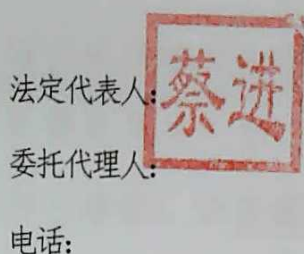 法定代表人：蔡进
委托代理人：
电话：